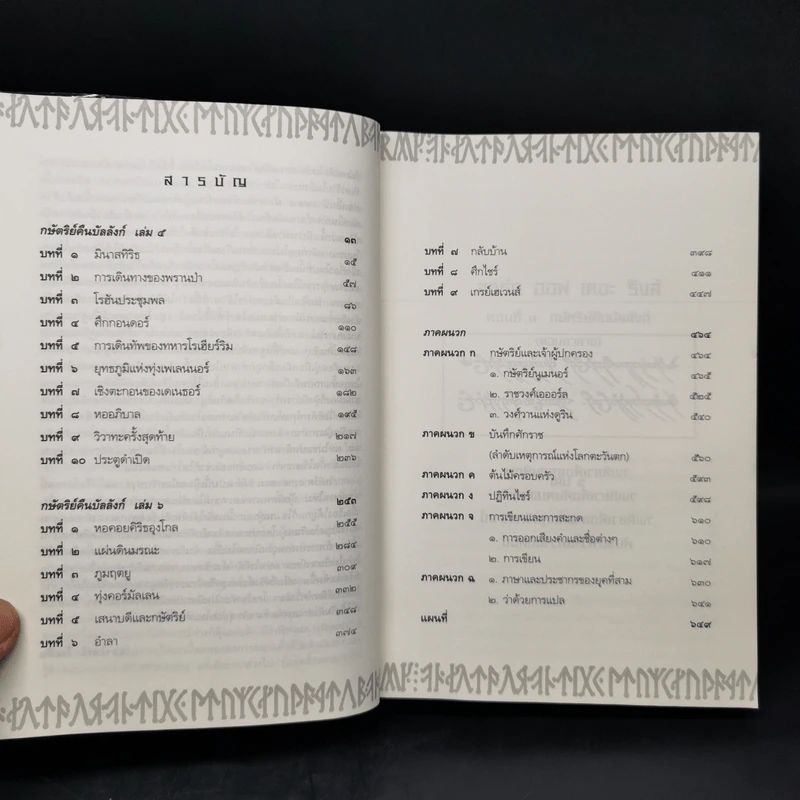 สารบัญ
กษัตริย์คืนบัลลังก์ เล่ม ๕ ๑๓
บทที่ ๑ มินาสทิริธ ๑๕
บทที่ ๒ การเดินทางของพรานป่า ๕๗
บทที่ ๓ โรฮันประชุมพล ๘๖
บทที่ ๔ ศึกกอนดอร์ ๑๑๐
บทที่ ๕ การเดินทัพของทหารโรเฮียร์ริม ๑๔๘
บทที่ ๖ ยุทธภูมิแห่งทุ่งเพเลนนอร์ ๑๖๓
บทที่ ๗ เชิงตะกอนของเดเนธอร์ ๑๘๒
บทที่ ๘ หออภิบาล ๑๙๕
บทที่ ๙ วิวาทะครั้งสุดท้าย ๒๑๗
บทที่ ๑๐ ประตูดำเปิด ๒๓๖
กษัตริย์คืนบัลลังก์ เล่ม ๖ ๒๕๓
บทที่ ๑ หอคอยคิริธอุงโกล ๒๕๕
บทที่ ๒ แผ่นดินมรณะ ๒๘๔
บทที่ ๓ ภูมฤตยู ๓๐๙
บทที่ ๔ ทุ่งคอร์มัลเลน ๓๓๒
บทที่ ๕ เสนาบดีและกษัตริย์ ๓๔๘
บทที่ ๖ อำลา ๓๗๔
บทที่ ๗ กลับบ้าน ๓๙๘
บทที่ ๘ ศึกไชร์ ๔๑๑
บทที่ ๙ เกรย์เฮเวนส์ ๔๔๗
ภาคผนวก ๔๖๔
ภาคผนวก ก กษัตริย์และเจ้าผู้ปกครอง ๔๖๔
๑. กษัตริย์นูเมนอร์ ๔๖๕
๒. ราชวงศ์เอออร์ล ๕๒๕
๓. วงศ์วานแห่งดูริน ๕๔๐
ภาคผนวก ข บันทึกศักราช
(ลำดับเหตุการณ์แห่งโลกตะวันตก) ๕๖๐
ภาคผนวก ค ต้นไม้ครอบครัว ๕๙๓
ภาคผนวก ง ปฏิทินไชร์ ๕๙๘
ภาคผนวก จ การเขียนและการสะกด ๖๑๐
๑. การออกเสียงคำและชื่อต่างๆ ๖๑๐
๒. การเขียน ๖๑๗
ภาคผนวก ฉ ๑. ภาษาและประชากรของยุคที่สาม ๖๓๐
๒. ว่าด้วยการแปล ๖๔๑
แผนที่ ๖๔๙